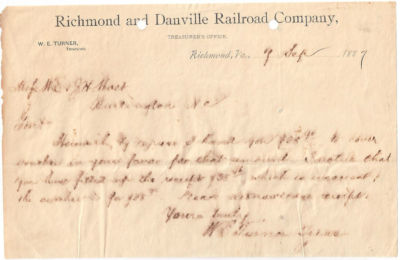 Richmond and Danville Railroad Company,
TREASURER'S OFFICE.
W. E. TURNER,
TREASURER.
Richmond, Va., 9 Sep 1887
Mess W E & J H
Burlington N C
Gents
Herewith, by express I hand you to cover
voucher in your favor for that amount. I notice that
you have filled up the receipt which is incorrect;
the voucher is for
Please acknowledge receipt.
Yours truly
W E Turner Treas